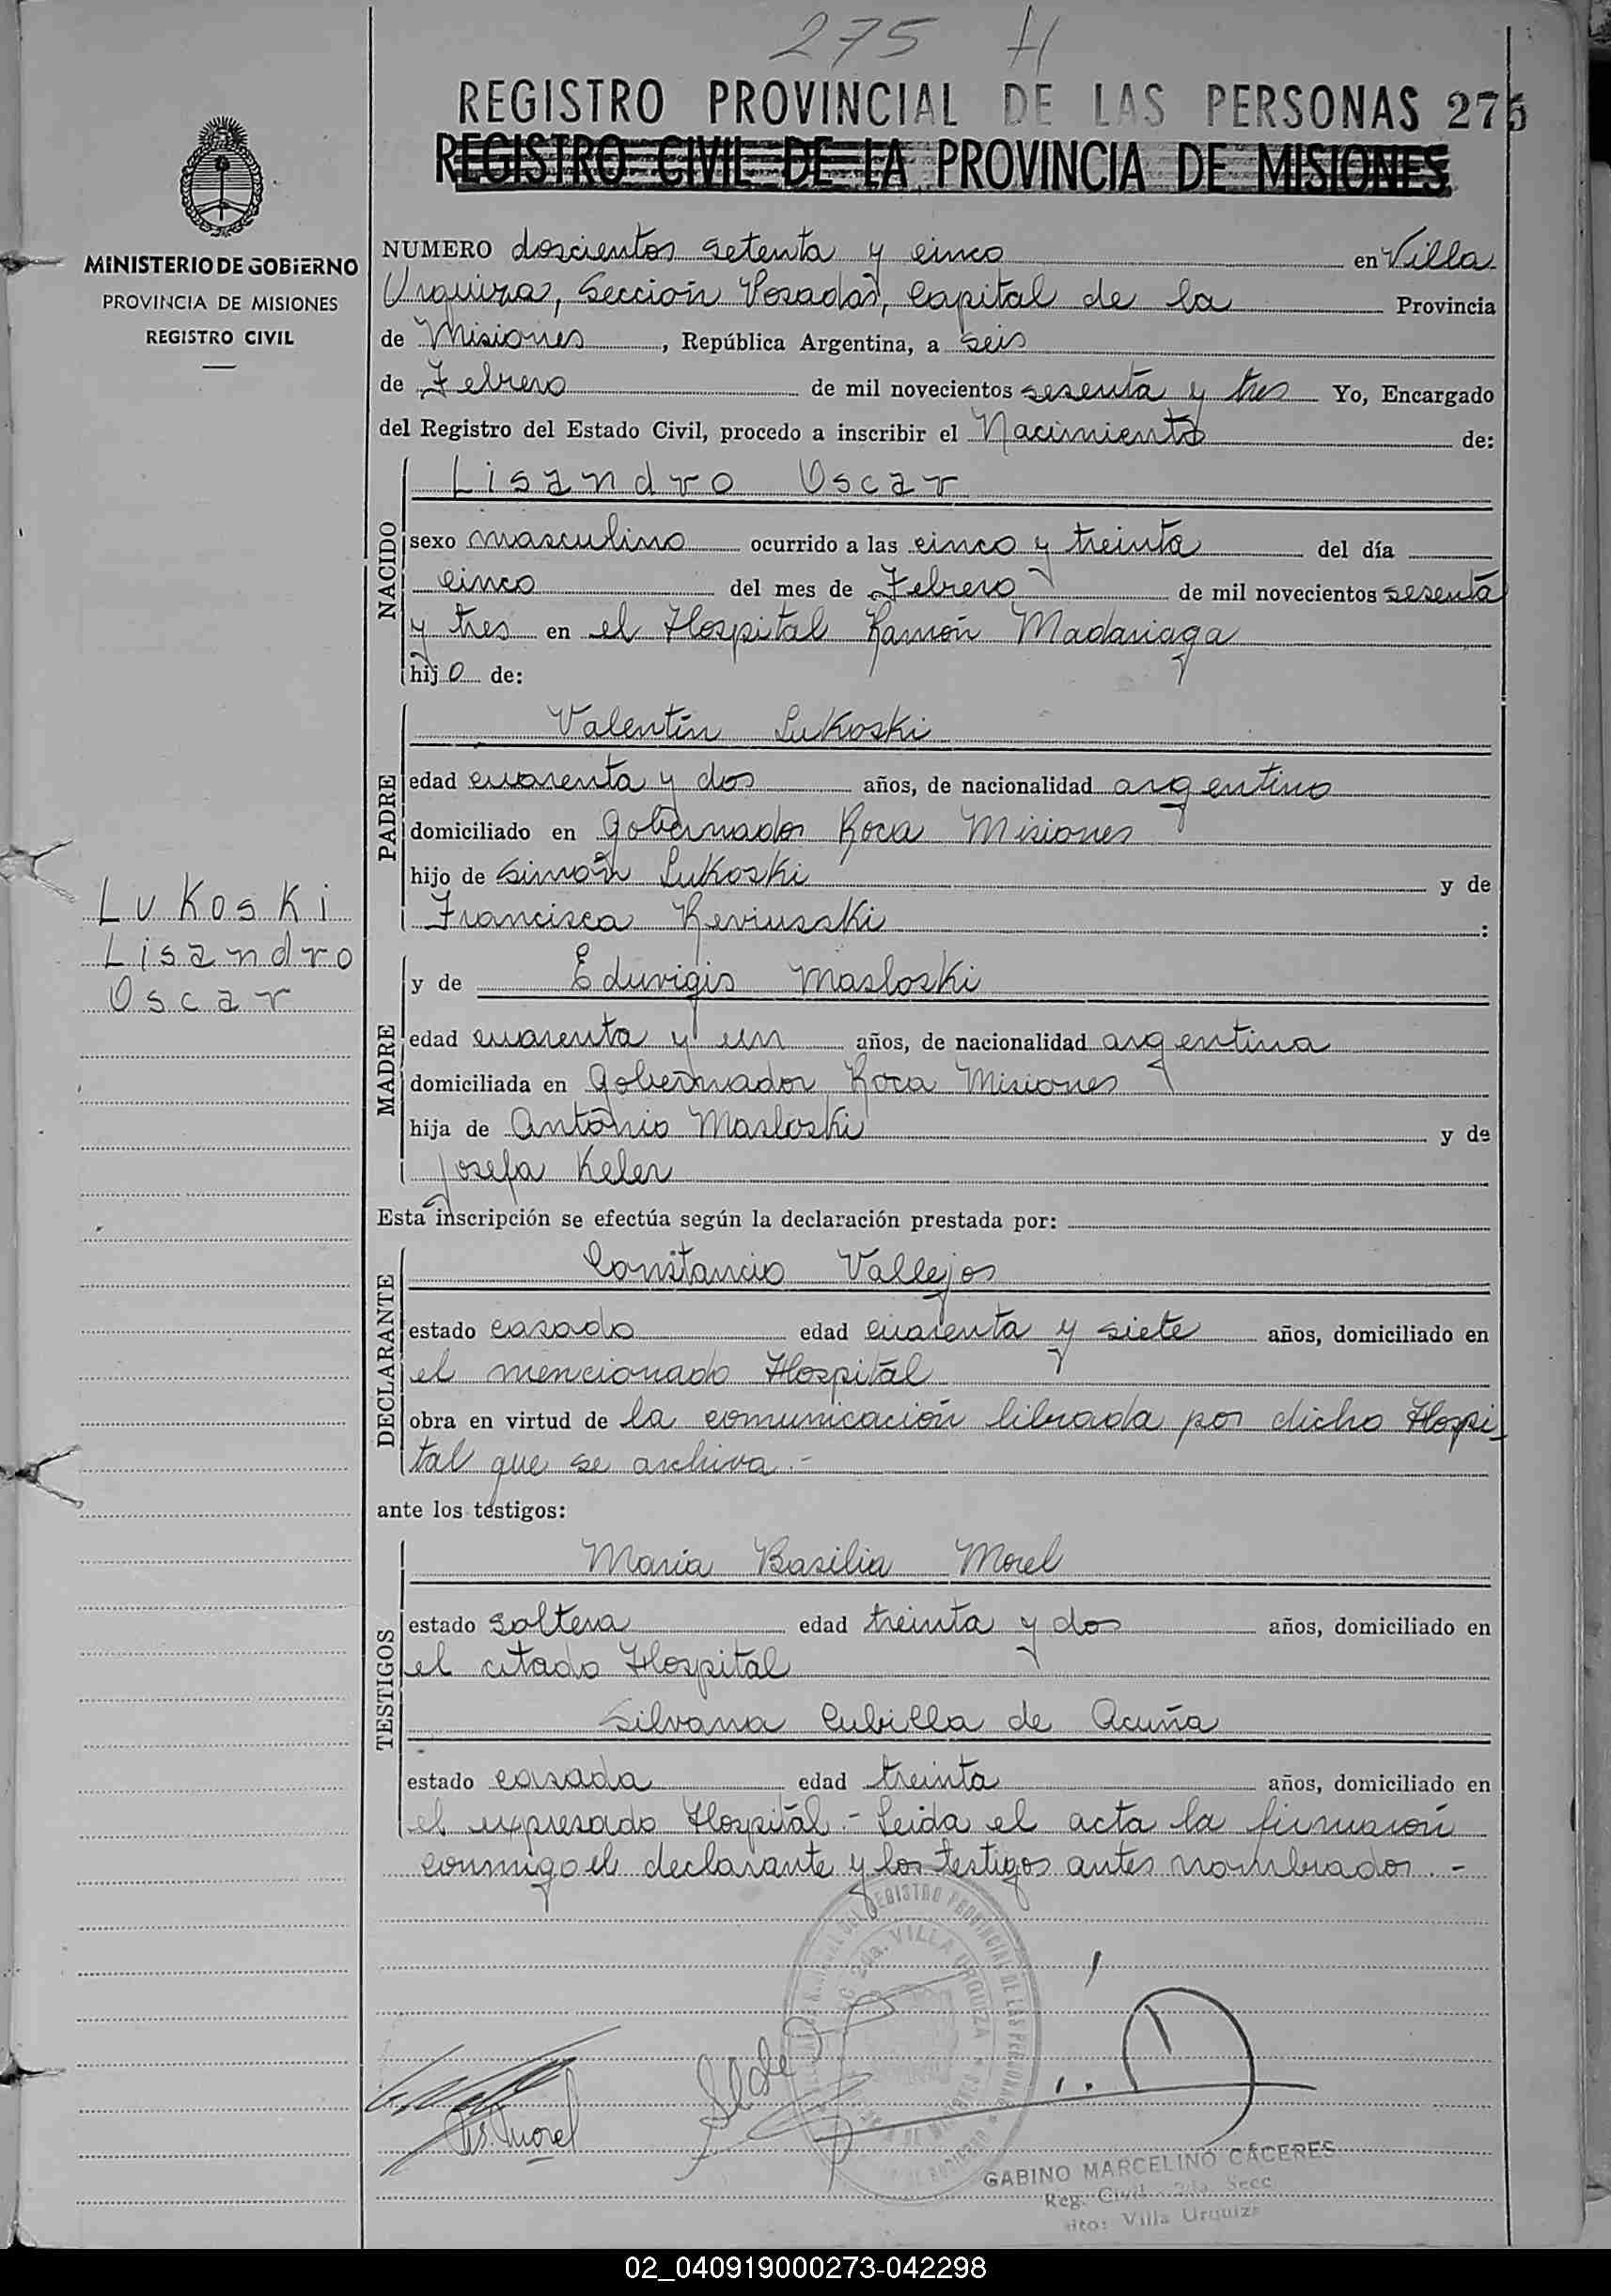 275 H
REGISTRO PROVINCIAL DE LAS PERSONAS 275
REGISTRO CIVIL DE LA PROVINCIA DE MISIONES
MINISTERIO DE GOBIERNO
PROVINCIA DE MISIONES
REGISTRO CIVIL
NUMERO doscientos setenta y cinco en Villa
Urquiza, Sección Posadas, Capital de la Provincia
de Misiones, República Argentina, a seis
de Febrero de mil novecientos sesenta y tres Yo, Encargado
del Registro del Estado Civil, procedo a inscribir el Nacimiento de:
NACIDO
Lisandro Oscar
sexo masculino ocurrido a las cinco y treinta del día
cinco del mes de Febrero de mil novecientos sesenta
y tres en el Hospital Ramón Madariaga
hijo de:
PADRE
Valentín Lukoski
edad cuarenta y dos años, de nacionalidad argentino
domiciliado en Gobernador Roca Misiones
hijo de Simón Lukoski y de
Francisca Reviusski :
Lukoski
Lisandro
Oscar
MADRE
y de Eduvigis Masloski
edad cuarenta y un años, de nacionalidad argentina
domiciliada en Gobernador Roca Misiones
hija de Antonio Masloski y de
Josefa Keler
Esta inscripción se efectúa según la declaración prestada por:
DECLARANTE
Constancio Vallejos
estado casado edad cuarenta y siete años, domiciliado en
el mencionado Hospital
obra en virtud de la comunicación librada por dicho Hospi-
tal que se archiva.-
ante los testigos:
TESTIGOS
María Basilia Morel
estado soltera edad treinta y dos años, domiciliado en
el citado Hospital
Silvana Cubilla de Acuña
estado casada edad treinta años, domiciliado en
el expresado Hospital.- Leida el acta la firmaron
conmigo el declarante y los testigos antes nombrados.-
REGISTRO PROVINCIAL DE LAS PERSONAS
2da. VILLA URQUIZA
Bs. Morel
GABINO MARCELINO CÁCERES
Reg. Civil 2da. Secc
Villa Urquiza
02_040919000273-042298